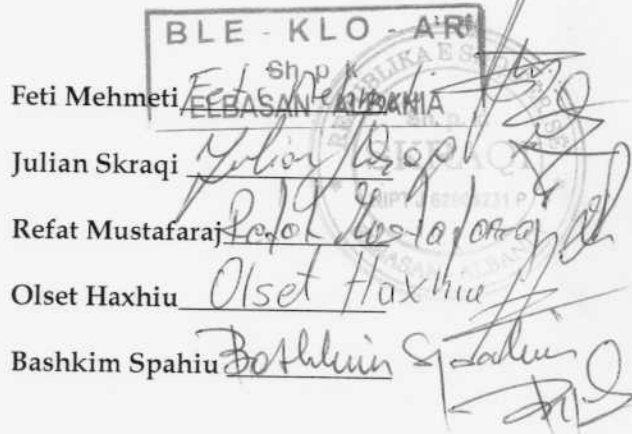 BLE - KLO - A'R
Sh.p.k
ELBASAN ALBANIA
Feti Mehmeti
Julian Skraqi
Refat Mustafaraj Refat Mustafaraj
Olset Haxhiu Olset Haxhiu
Bashkim Spahiu Bashkim Spahiu